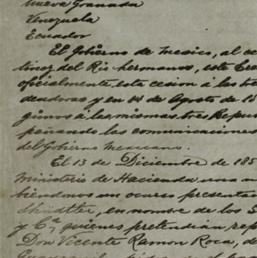 Nueva Granada
Venezuela
Ecuador
El Gobierno de Mexico, al ce
tinez del Rio hermanos, este Cre
oficialmente esta cesion á las tre
deudoras y en 14 de Agosto de 18
á las mismas tres Repu
las comunicaciones
del Gobierno Mexicano.
El 13 de Diciembre de 185
Ministerio de Hacienda una
un ocurso presenta
en nombre de los S
y Cª, quienes pretendian rep
Don Vicente Ramon Roca, de